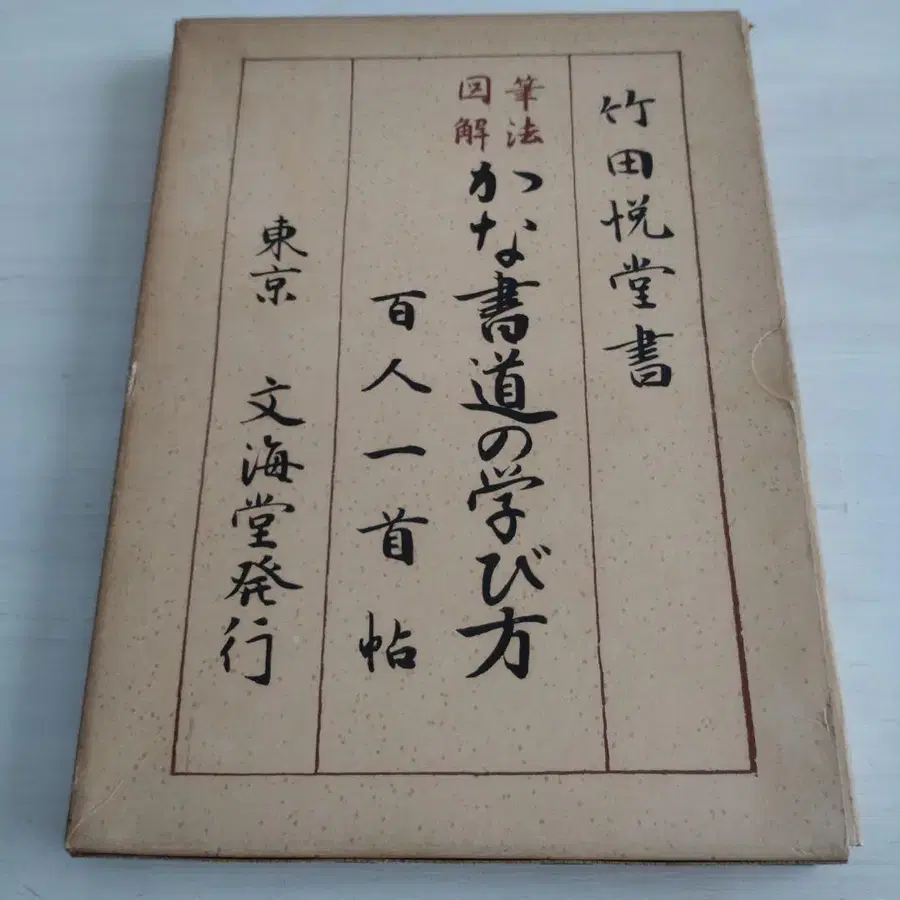 竹田悦堂書
筆法
図解
かな書道の学び方
百人一首帖
東京 文海堂発行